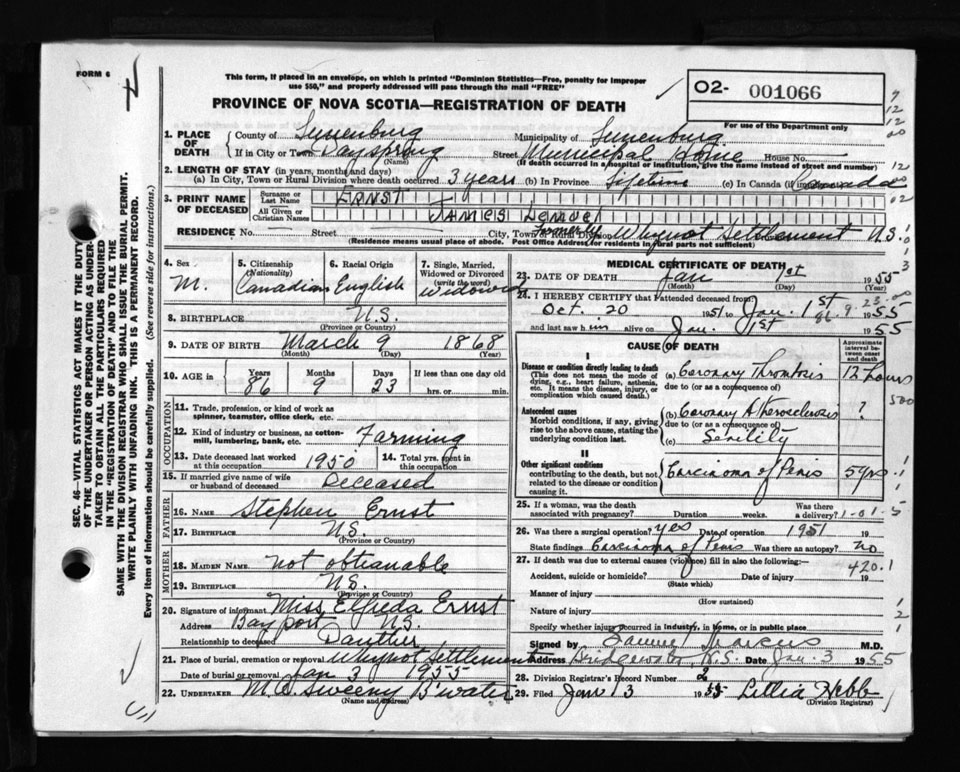 FORM 6
This form, if placed in an envelope, on which is printed "Dominion Statistics—Free, penalty for improper
use $50," and properly addressed will pass through the mail "FREE"
PROVINCE OF NOVA SCOTIA—REGISTRATION OF DEATH
O2- 001066
For use of the Department only
1. PLACE OF DEATH
County of Lunenburg Municipality of Lunenburg
If in City or Town Dayspring (Name) Street Municipal Home House No.
(If death occurred in a hospital or institution, give the name instead of street and number)
2. LENGTH OF STAY (in years, months and days)
(a) In City, Town or Rural Division where death occurred 3 years (b) In Province Lifetime (c) In Canada (if immigrant)
3. PRINT NAME OF DECEASED
Surname or Last Name ERNST
All Given or Christian Names JAMES Lemuel
RESIDENCE No. Street City, Town or Rural Division Formerly Whynot Settlement N.S.
(Residence means usual place of abode. Post Office Address for residents in rural parts not sufficient)
4. Sex M.
5. Citizenship (Nationality) Canadian
6. Racial Origin English
7. Single, Married, Widowed or Divorced (write the word) Widowed
8. BIRTHPLACE N.S.
(Province or Country)
9. DATE OF BIRTH March 9 1868
(Month) (Day) (Year)
10. AGE in Years 86 Months 9 Days 23 If less than one day old hrs. or min.
OCCUPATION
11. Trade, profession, or kind of work as spinner, teamster, office clerk, etc.
12. Kind of industry or business, as cotton-mill, lumbering, bank, etc. Farming
13. Date deceased last worked at this occupation 1950
14. Total yrs. spent in this occupation
15. If married give name of wife or husband of deceased Deceased
FATHER
16. Name Stephen Ernst
17. Birthplace N.S.
(Province or Country)
MOTHER
18. MAIDEN NAME Not obtianable
19. BIRTHPLACE N.S.
(Province or Country)
20. Signature of informant Miss Elfreda Ernst
Address Bayport N.S.
Relationship to deceased Dauther
21. Place of burial, cremation or removal Whynot Settlement
Date of burial or removal Jan 3 1955
22. UNDERTAKER M.C. Sweeny B'water
(Name and address)
MEDICAL CERTIFICATE OF DEATH
23. DATE OF DEATH Jan 1st 1955
(Month) (Day) (Year)
24. I HEREBY CERTIFY that I attended deceased from:
Oct. 20 1951 to Jan. 1st 1955
and last saw him alive on Jan. 1st 1955
CAUSE OF DEATH
Approximate interval between onset and death
I
Disease or condition directly leading to death
(This does not mean the mode of dying, e.g., heart failure, asthenia, etc. It means the disease, injury, or complication which caused death.)
(a) Coronary Thrombosis 12 hours
due to (or as a consequence of)
Antecedent causes
Morbid conditions, if any, giving rise to the above cause, stating the underlying condition last.
(b) Coronary Atherosclerosis ?
due to (or as a consequence of)
(c) Senility
II
Other significant conditions
contributing to the death, but not related to the disease or condition causing it.
Carcinoma of Penis 5 yrs.
25. If a woman, was the death associated with pregnancy? Duration weeks. Was there a delivery?
26. Was there a surgical operation? yes Date of operation 1951
State findings Carcinoma of Penis Was there an autopsy? no
27. If death was due to external causes (violence) fill in also the following:—
420.1
Accident, suicide or homicide? Date of injury 19
(State which)
Manner of injury
(How sustained)
Nature of injury
Specify whether injury occurred in industry, in home, or in public place
Signed by M.D.
Address Bridgewater, N.S. Date Jan. 3 1955
28. Division Registrar's Record Number 2
29. Filed Jan 13 1955 Lillia Hebb
(Division Registrar)
SEC. 46—VITAL STATISTICS ACT MAKES IT THE DUTY
OF THE UNDERTAKER OR PERSON ACTING AS UNDER-
TAKER TO OBTAIN ALL THE PARTICULARS REQUIRED
IN THE "REGISTRATION OF DEATH" AND TO FILE THE
SAME WITH THE DIVISION REGISTRAR WHO SHALL ISSUE THE BURIAL PERMIT.
WRITE PLAINLY WITH UNFADING INK. THIS IS A PERMANENT RECORD.
Every item of information should be carefully supplied. (See reverse side for instructions.)